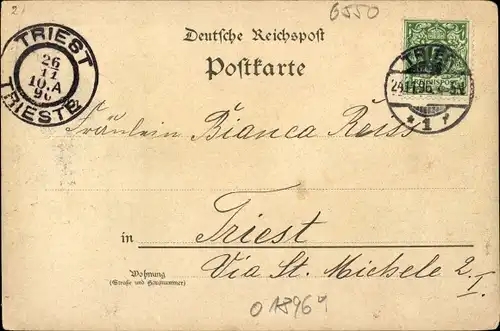 2
6550
Deutsche Reichspost
Postkarte
TRIEST
26
11
10.A
96
TRIESTE
24.11.96. 4-5N.
* 1 *
Fräulein Bianca Reiss
in Triest
Via St. Michele 2
I.
Wohnung
(Straße und Hausnummer)
01896